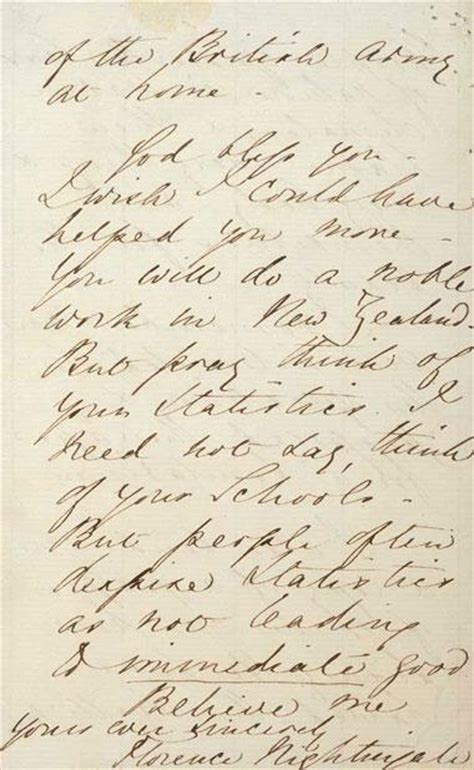 of the British Army
at home -
God bless you -
I wish I could have
helped you more -
You will do a noble
work in New Zealand
But pray think of
your Statistics. I
need not say, think
of your Schools -
But people often
despise Statistics
as not leading
to immediate good
Believe me
yours ever sincerely
Florence Nightingale